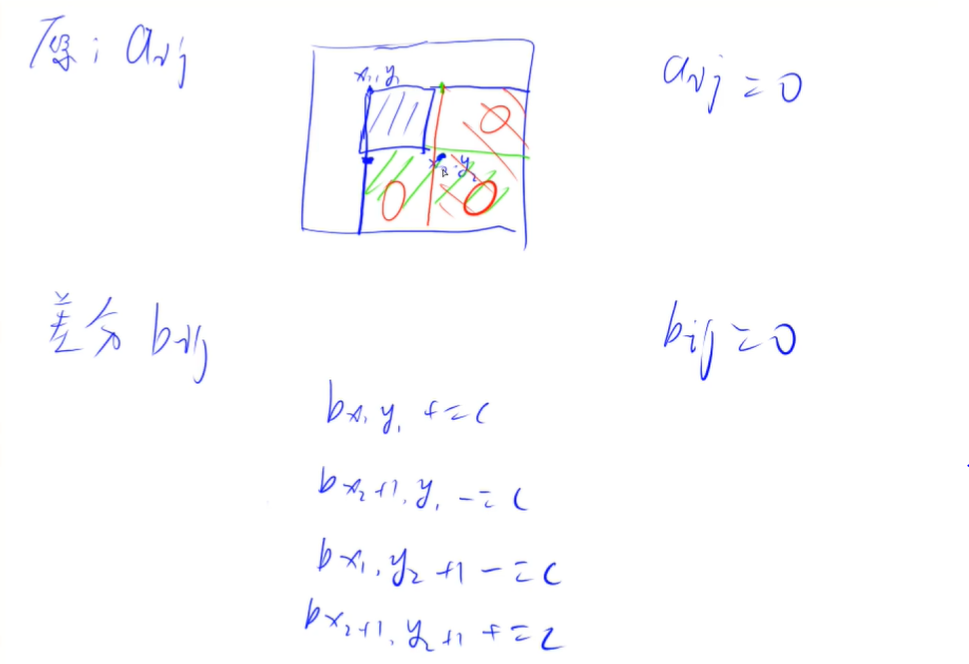 原: aij
aij = 0
x1, y1
x2, y2
差分 bij
bij = 0
bx1y1 += c
bx2+1, y1 -= c
bx1, y2+1 -= c
bx2+1, y2+1 += c